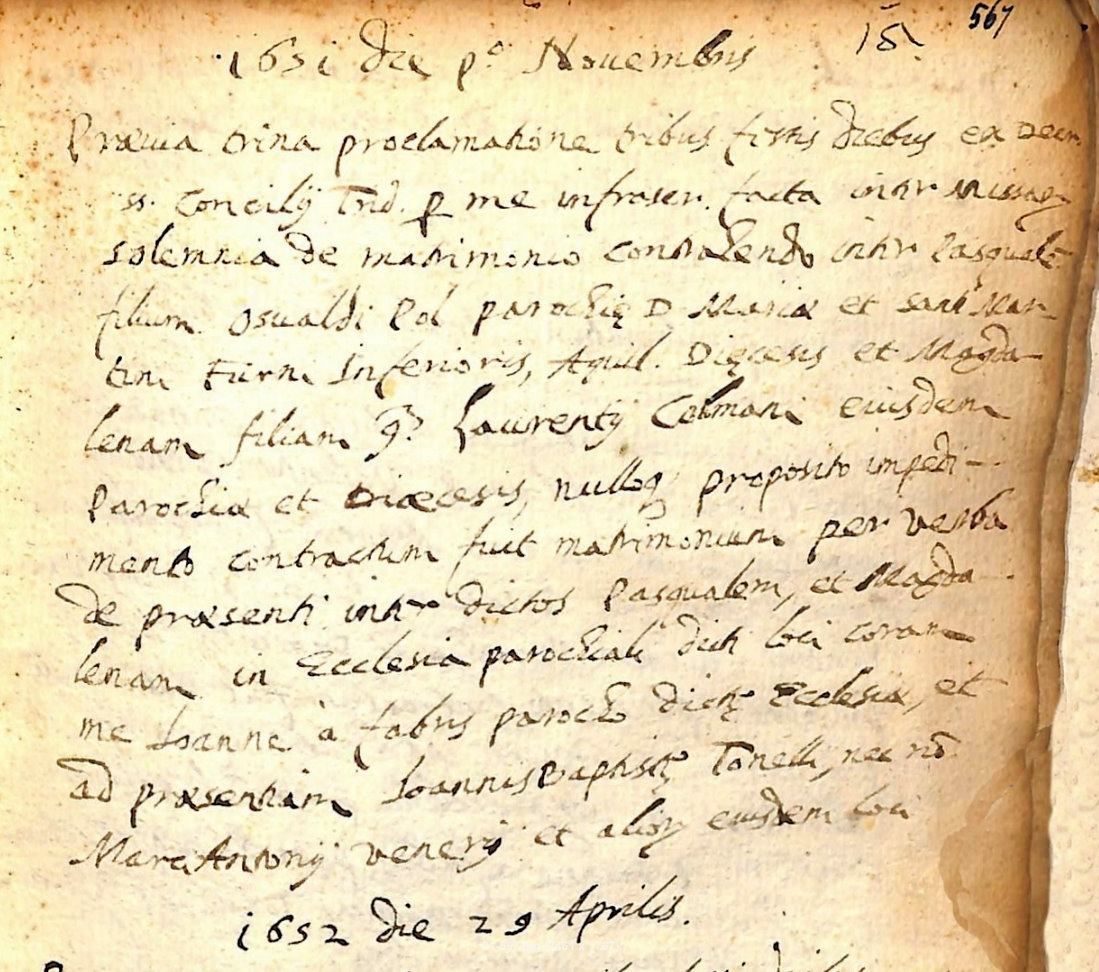 567
151
1651 die p.º Novembris
Prævia trina proclamatione tribus festis diebus ex Decr.
ss. Concilij Trid. p me infrascr. facta inter Missarũ
solemnia de matrimonio contrahendo inter Pasqualẽ
filium Osualdi Pol parochię D. Mariæ et sanct Mar-
tini Turri Inferioris, Aquil. Dięcesis et Magda-
lenam filiam q. Laurentij Colmani eiusdem
Parochiæ et Diæcesis, nulloq; proposito impedi-
mento contractum fuit matrimonium per verba
de præsenti inter dictos Pasqualem, et Magda-
lenam in Ecclesia parochiali dicti loci coram
me Ioanne à fabris parocho dictę Ecclesiæ, et
ad præsentiam Ioannis Baptistę Tonelli, nec nõ
Marci Antonij Venerij et alioų eiusdem loci
1652 die 29 Aprilis.